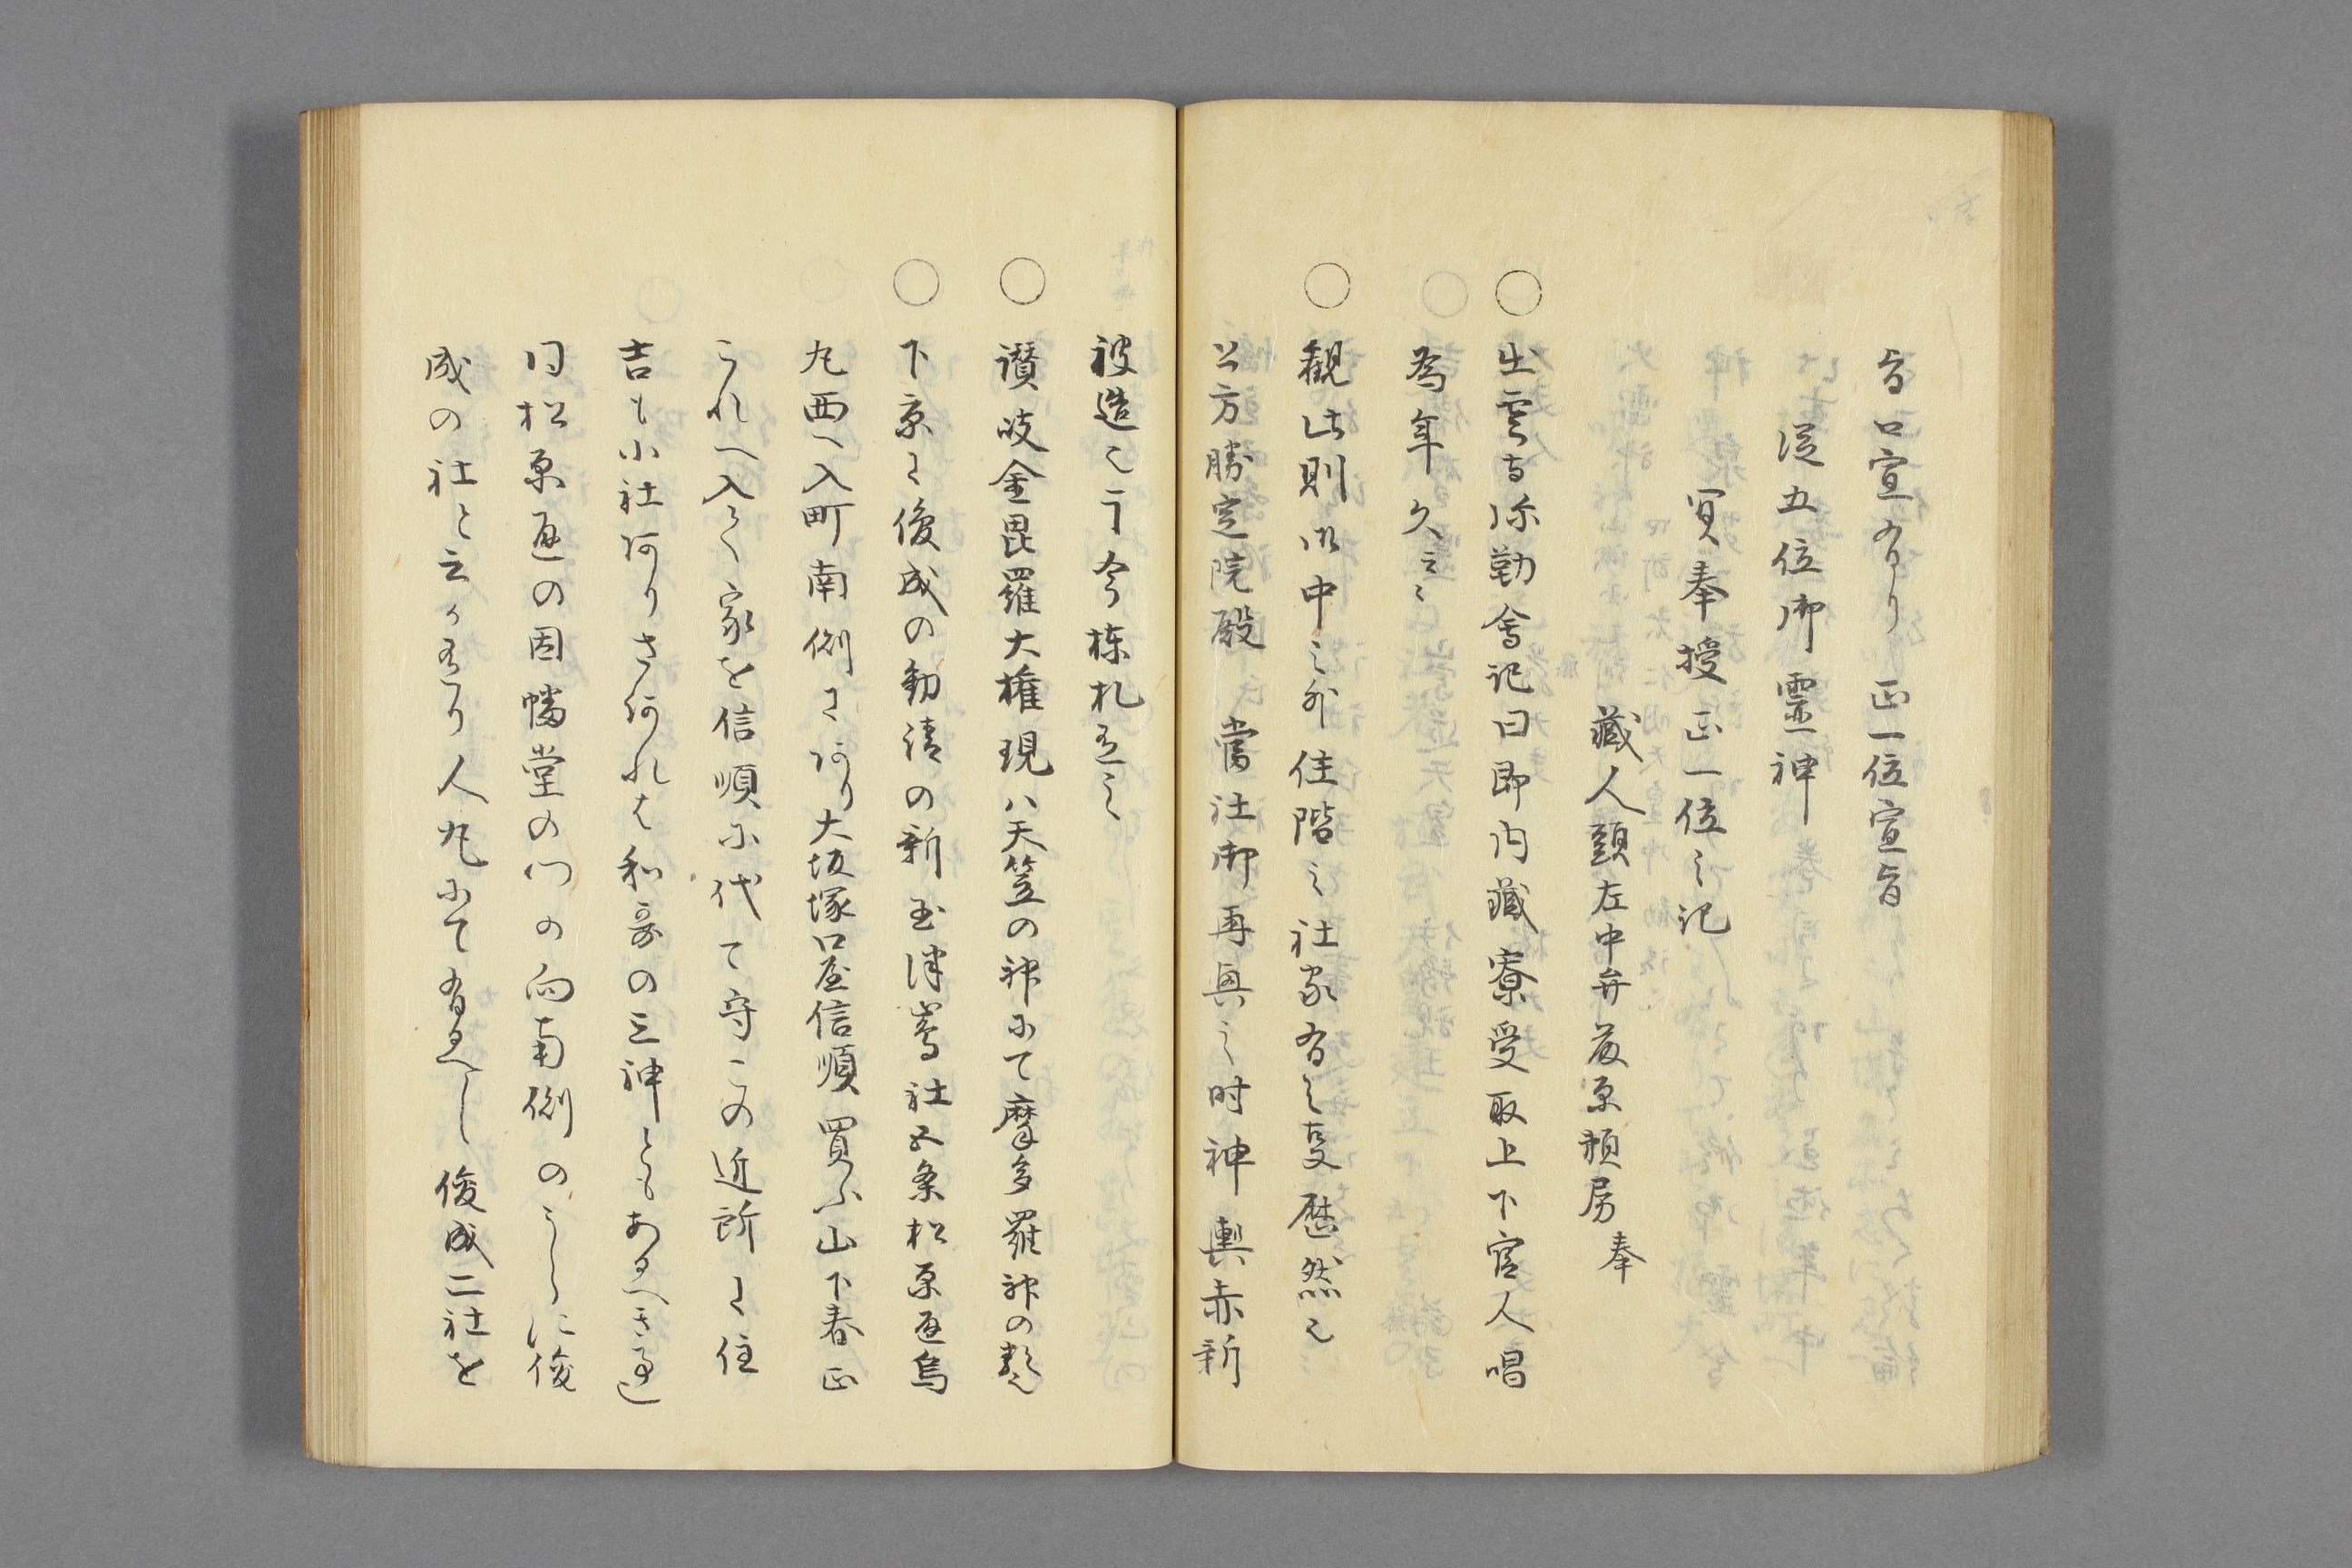 旨口宣有り　正一位宣旨
従五位御霊神
宜奉授正一位之記
蔵人頭左中弁藤原頼房
奉
○出雲寺弥勤会記曰即内蔵寮受取上下官人唱
為年久云々
○観此則以中之外位階之社家有之事歴然也
公方勝定院殿　当社御再興之時神輿赤新
被造也于今棟札在之
○讃岐金毘羅大権現ハ天笠の神にて摩多羅神の類也
○下京に俊成の勧請の新玉津嶋社五条松原通烏
丸西へ入町南側にあり大坂塚口屋信順買ふ山下春正
これへ入て家を信順に代て守この近所に住
吉も小社阿りさ阿れは和哥の三神ともあるへき事也
同松原通の因幡堂の門の向南側のうしろに俊
成の社と云う有り人丸にて有るへし俊成二社を